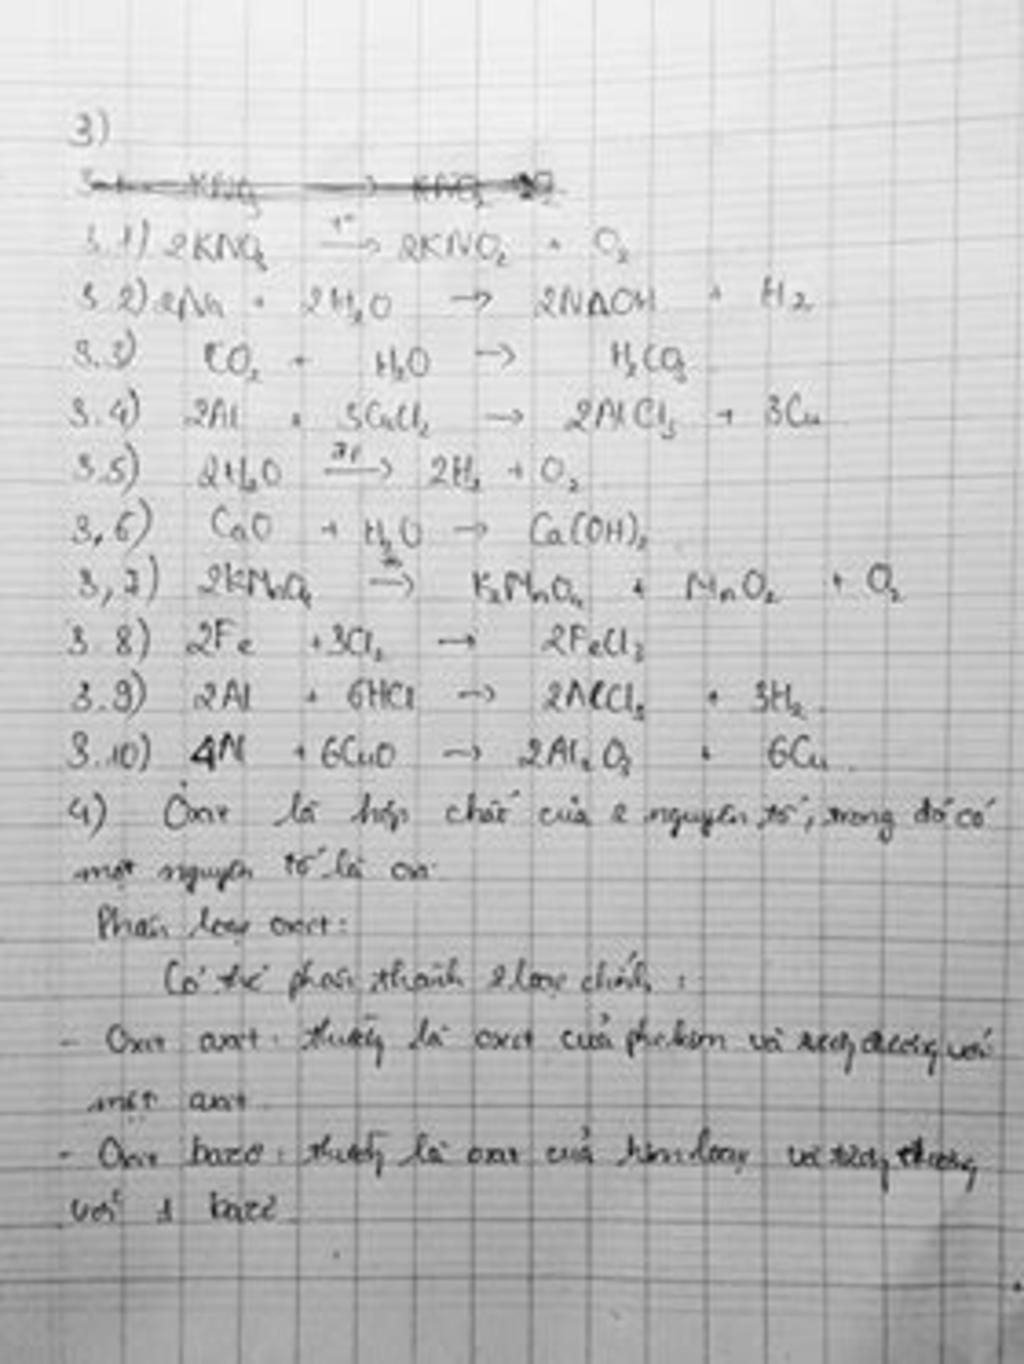 3)
3.1) 2KNO₃ t° → 2KNO₂ + O₂
3.2) 2Na + 2H₂O → 2NaOH + H₂
3.3) CO₂ + H₂O → H₂CO₃
3.4) 2Al + 3CuCl₂ → 2AlCl₃ + 3Cu
3.5) 2H₂O đp → 2H₂ + O₂
3,6) CaO + H₂O → Ca(OH)₂
3,7) 2KMnO₄ t° → K₂MnO₄ + MnO₂ + O₂
3.8) 2Fe + 3Cl₂ → 2FeCl₃
3.9) 2Al + 6HCl → 2AlCl₃ + 3H₂
3.10) 4Al + 6CuO → 2Al₂O₃ + 6Cu
4) Oxit là hợp chất của 2 nguyên tố, trong đó có
một nguyên tố là oxi.
Phân loại oxit:
Có thể phân thành 2 loại chính :
- Oxit axit : thường là oxit của phi kim và tương ứng với
một axit
- Oxit bazơ : thường là oxit của kim loại và tương ứng
với 1 bazơ